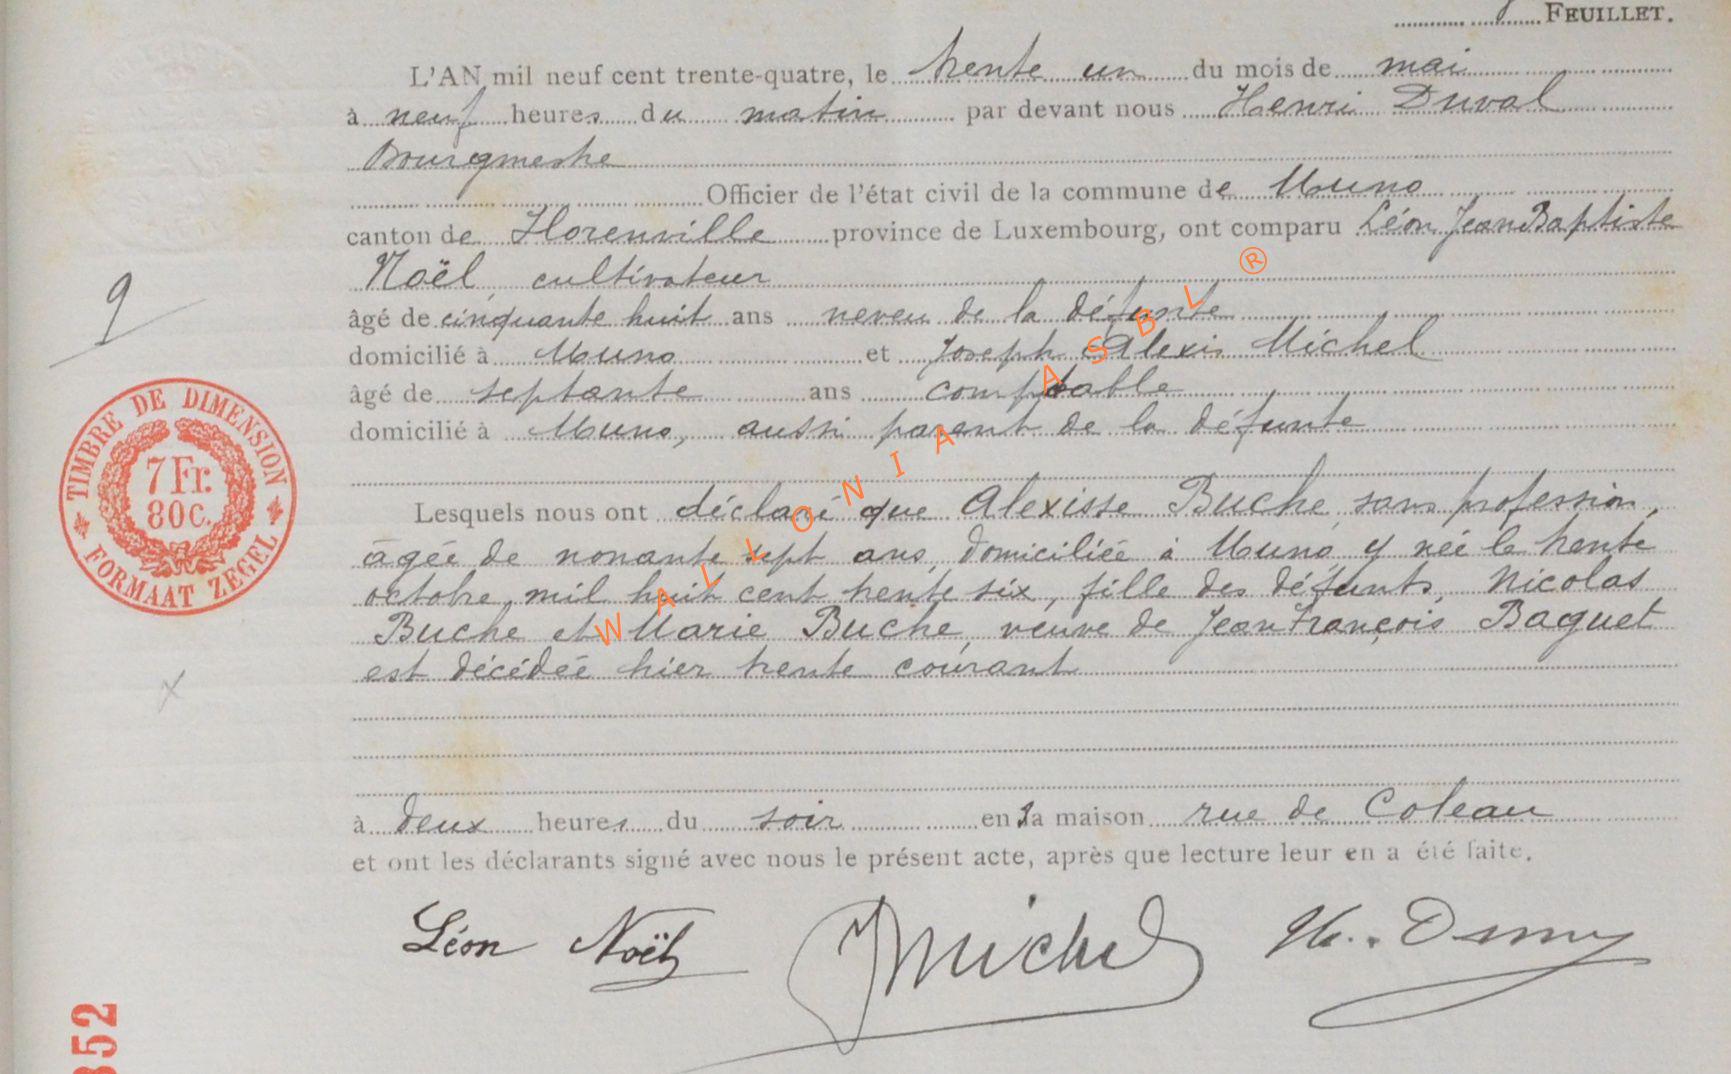 FEUILLET.
L'AN mil neuf cent trente-quatre, le trente un du mois de mai
à neuf heures du matin par devant nous Henri Duval
Bourgmestre
Officier de l'état civil de la commune de Muno
canton de Florenville province de Luxembourg, ont comparu Léon Jean Baptiste
Noël, cultivateur
âgé de cinquante huit ans neveu de la défunte
domicilié à Muno et Joseph Alexis Michel
âgé de septante ans comptable
domicilié à Muno, aussi parent de la défunte
Lesquels nous ont déclaré que Alexisse Buche, sans profession,
âgée de nonante sept ans, domiciliée à Muno, y née le trente
octobre mil huit cent trente six, fille des défunts, Nicolas
Buche et Marie Buche, veuve de Jean François Baquet
est décédée hier trente courant
à deux heures du soir en sa maison rue de Coleau
et ont les déclarants signé avec nous le présent acte, après que lecture leur en a été faite.
Léon Noël JMichel
9
TIMBRE DE DIMENSION
7 Fr.
80 C.
FORMAAT ZEGEL
x
352
WALLONIA ASBL ®